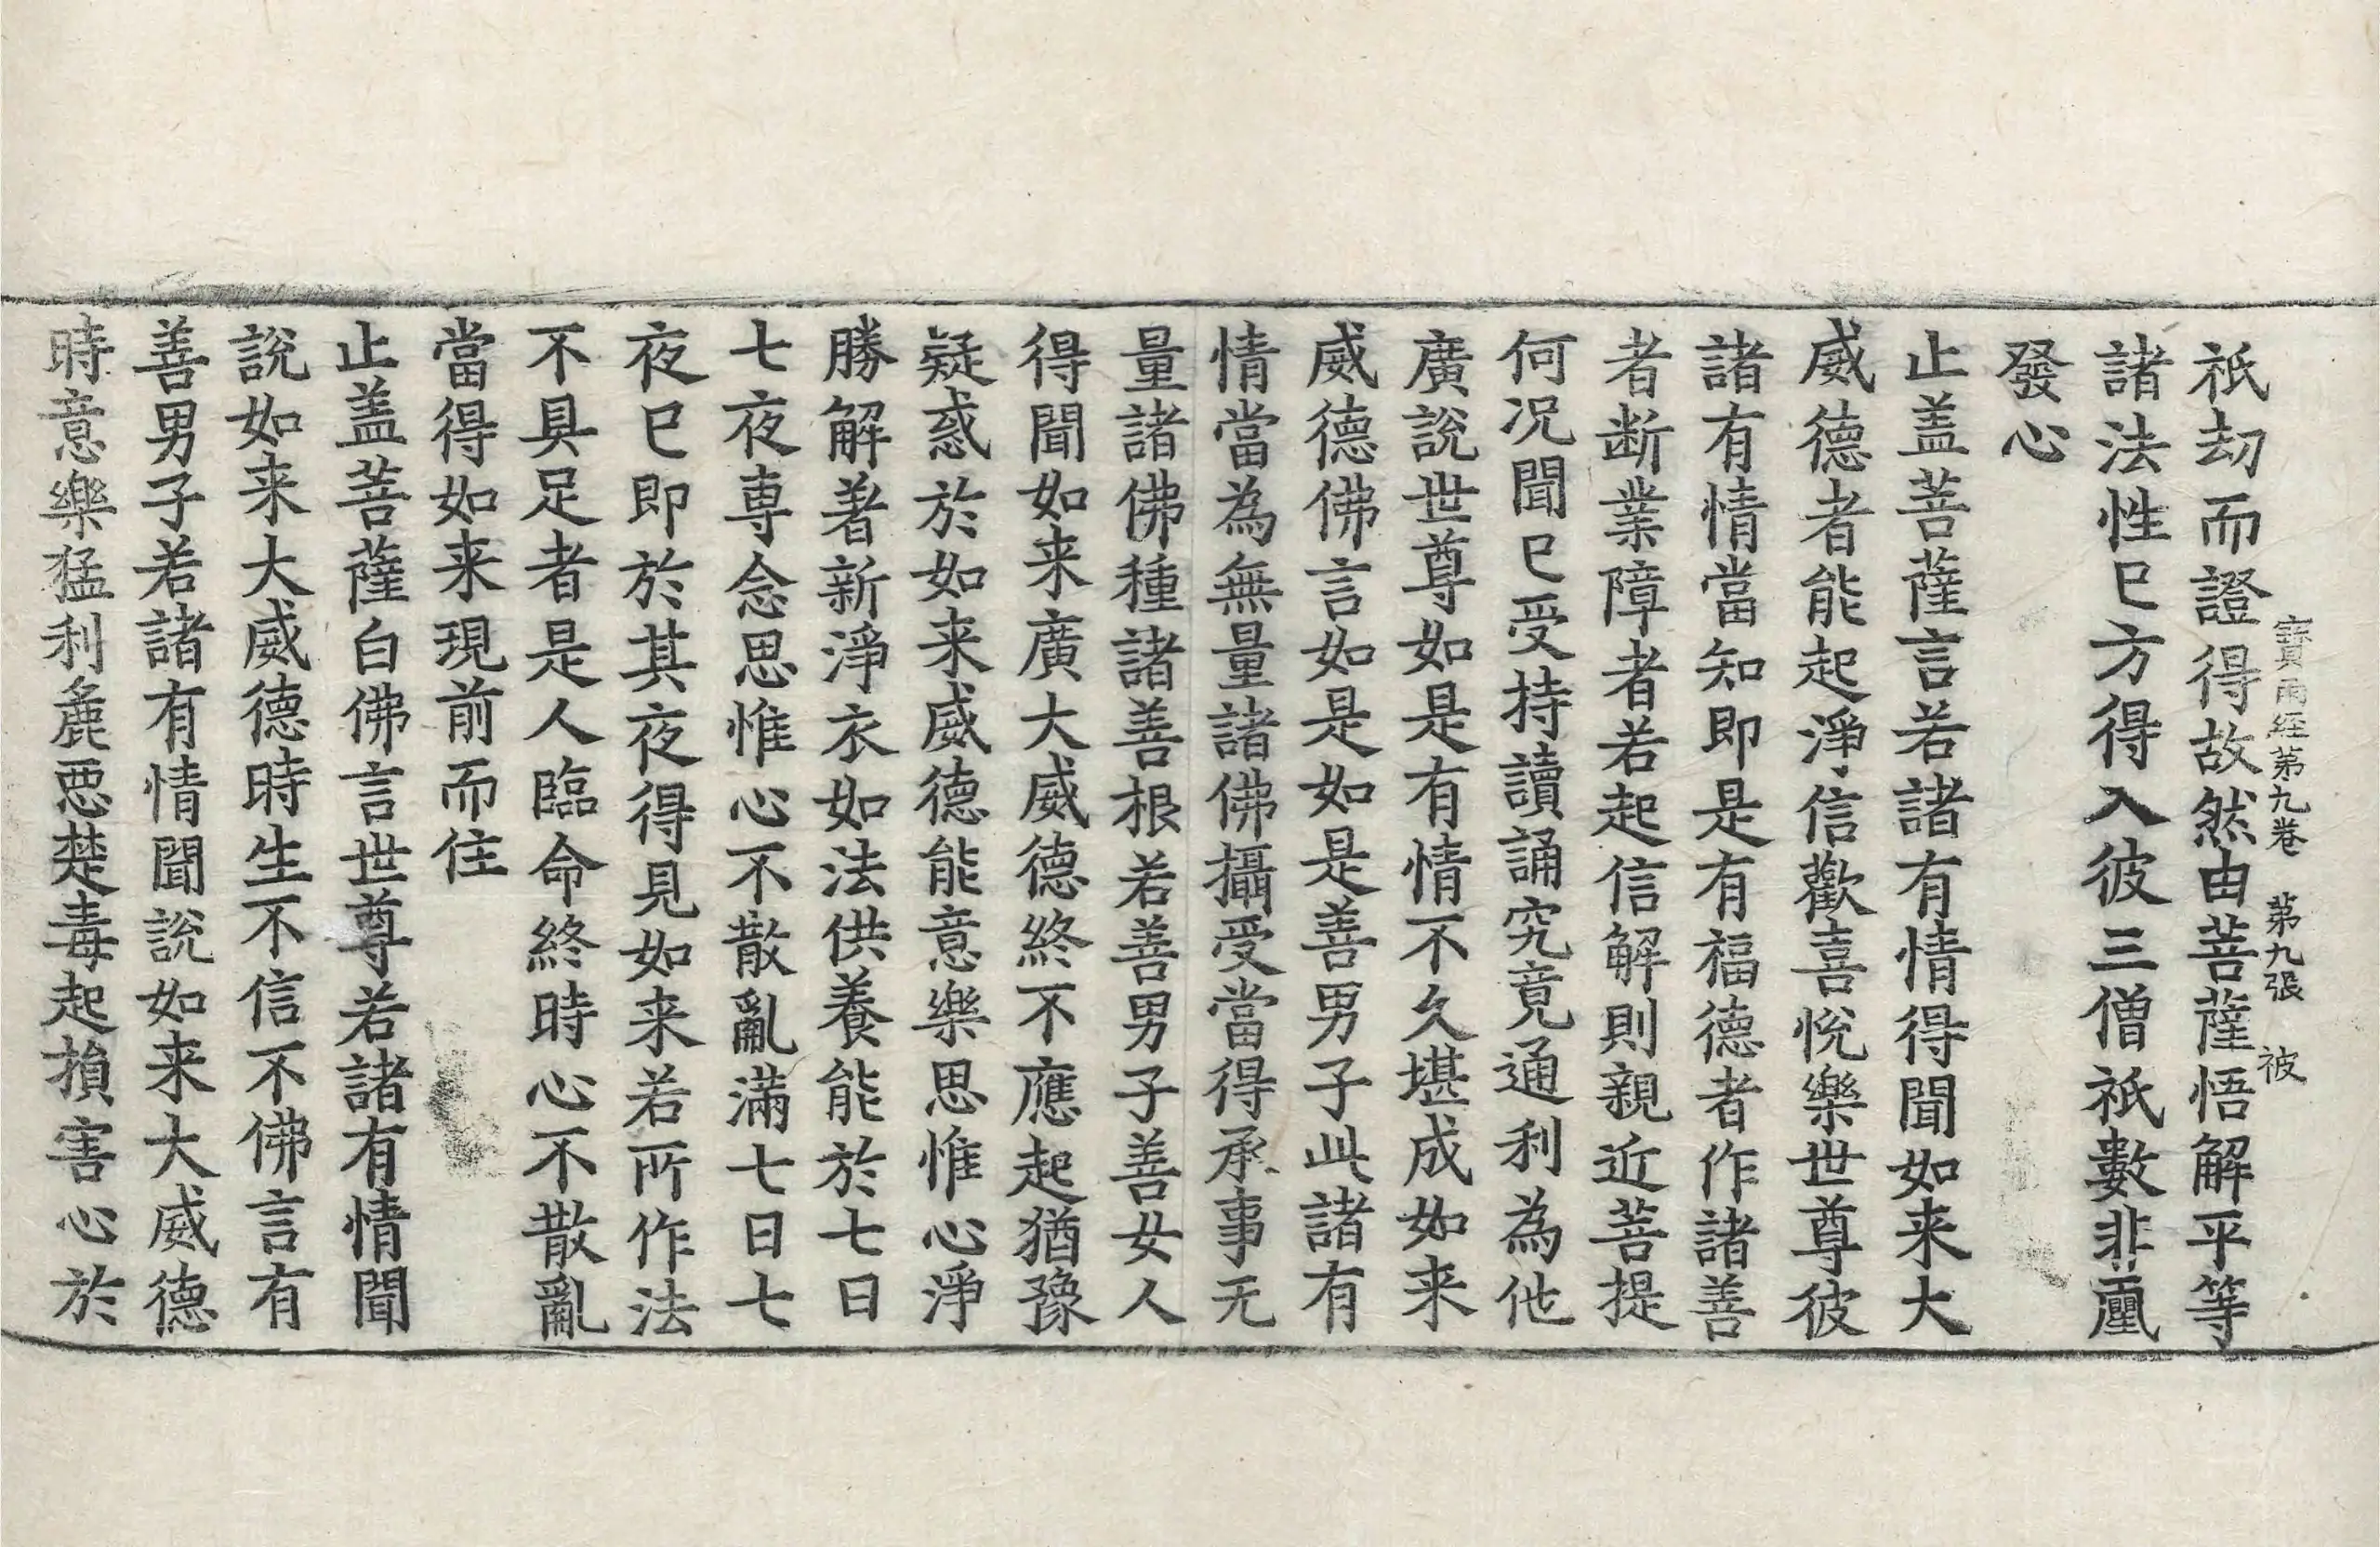 寶雨經第九卷 第九張 被
祇劫而證得故然由菩薩悟解平等
諸法性已方得入彼三僧祇數非𢋨
發心
止盖菩薩言若諸有情得聞如来大
威德者能起淨信歡喜悅樂世尊彼
諸有情當知即是有福德者作諸善
者断業障者若起信解則親近菩提
何况聞已受持讀誦究竟通利為他
廣說世尊如是有情不久堪成如来
威德佛言如是如是善男子此諸有
情當為無量諸佛攝受當得承事无
量諸佛種諸善根若善男子善女人
得聞如来廣大威德終不應起猶豫
疑惑於如来威德能意樂思惟心淨
勝解著新淨衣如法供養能於七日
七夜専念思惟心不散亂滿七日七
夜已即於其夜得見如来若所作法
不具足者是人臨命終時心不散亂
當得如来現前而住
止盖菩薩白佛言世尊若諸有情聞
說如来大威德時生不信不佛言有
善男子若諸有情聞說如来大威德
時意樂猛利麁惡楚毒起損害心於